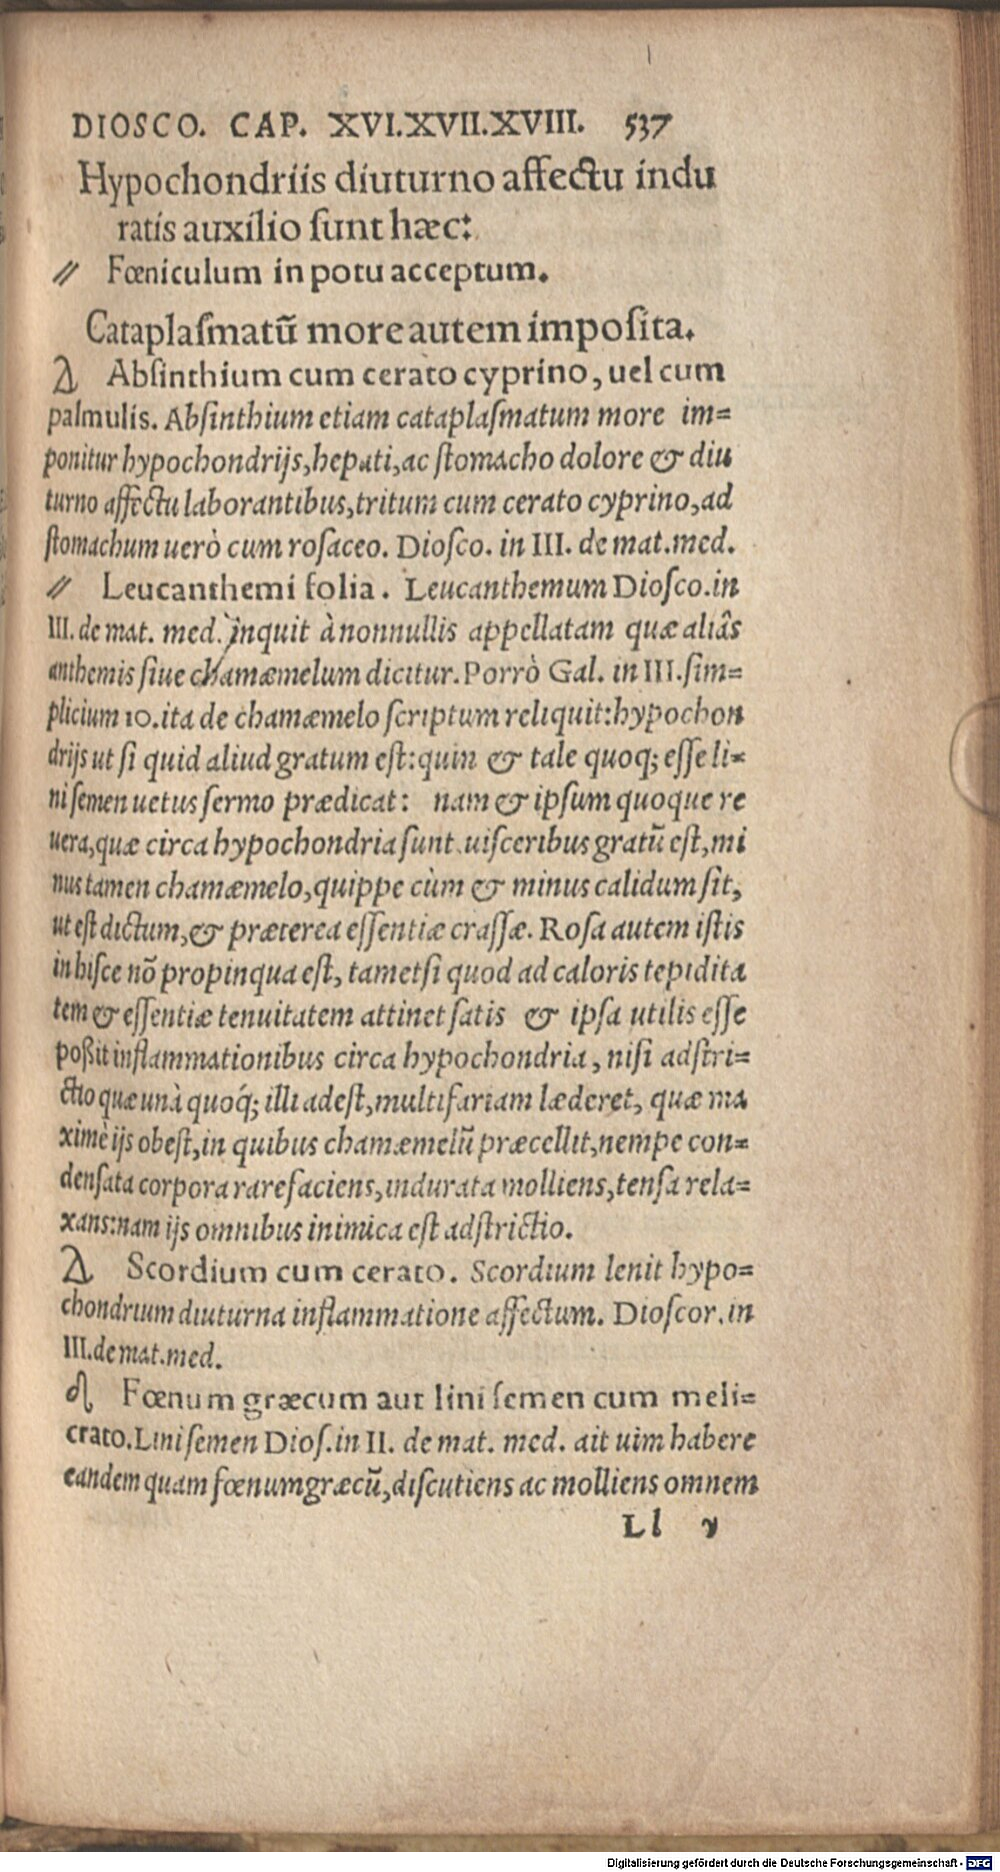 DIOSCO. CAP. XVI.XVII.XVIII. 537
Hypochondriis diuturno affectu indu
ratis auxilio ſunt hæc:
// Fœniculum in potu acceptum.
Cataplaſmatũ more autem impoſita.
Abſinthium cum cerato cyprino, uel cum
palmulis. Abſinthium etiam cataplaſmatum more im=
ponitur hypochondrijs, hepati, ac ſtomacho dolore & diu
turno affectu laborantibus, tritum cum cerato cyprino, ad
ſtomachum uerò cum roſaceo. Dioſco. in III. de mat.med.
// Leucanthemi folia. Leucanthemum Dioſco.in
III. de mat. med. inquit à nonnullis appellatam quæ aliâs
anthemis ſiue chamæmelum dicitur. Porrò Gal. in III.ſim=
plicium 10.ita de chamæmelo ſcriptum reliquit:hypochon
drijs ut ſi quid aliud gratum eſt:quin & tale quoq; eſſe li=
ni ſemen uetus ſermo prædicat: nam & ipſum quoque re
uera,quæ circa hypochondria ſunt uiſceribus gratũ eſt,mi
nus tamen chamæmelo,quippe cùm & minus calidum ſit,
ut eſt dictum,& præterea eſſentiæ craſſæ. Roſa autem iſtis
in hiſce nõ propinqua eſt, tametſi quod ad caloris tepidita
tem & eſſentiæ tenuitatem attinet ſatis & ipſa utilis eſſe
poßit inflammationibus circa hypochondria, niſi adſtri=
ctio quæ unà quoq́; illi adeſt,multifariam læderet, quæ ma
ximè ijs obeſt,in quibus chamæmelũ præcellit,nempe con=
denſata corpora rarefaciens,indurata molliens,tenſa rela=
xans:nam ijs omnibus inimica eſt adſtrictio.
Scordium cum cerato. Scordium lenit hypo=
chondrium diuturna inflammatione affectum. Dioſcor.in
III.de mat.med.
Fœnum græcum aut lini ſemen cum meli=
crato.Lini ſemen Dioſ.in II. de mat. med. ait uim habere
eandem quam fœnumgræcũ,diſcutiens ac molliens omnem
Ll v
Digitalisierung gefördert durch die Deutsche Forschungsgemeinschaft - DFG